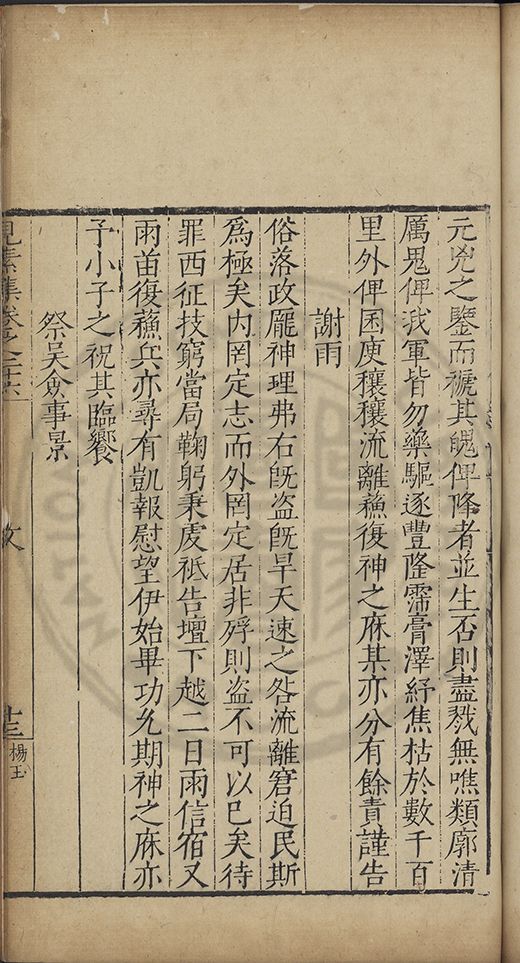 元兇之鑒而褫其魄俾降者並生否則盡戮無噍類廓清
厲鬼俾我軍皆勿藥驅逐豐隆霈膏澤紓焦枯於數千百
里外俾囷庾穰穰流離蘓復神之庥某亦分有餘責謹告
謝雨
俗落政厖神理弗右旣盗旣旱天速之咎流離窘迫民斯
爲極矣内罔定志而外罔定居非殍則盗不可以已矣待
罪西征技窮當局鞠躬秉虔祗告壇下越二日雨信宿又
雨苗復蘓兵亦尋有凱報慰望伊始畢功允期神之庥亦
子小子之祝其臨饗
祭吳僉事景
見素集卷之二十六
文
十三
楊玉